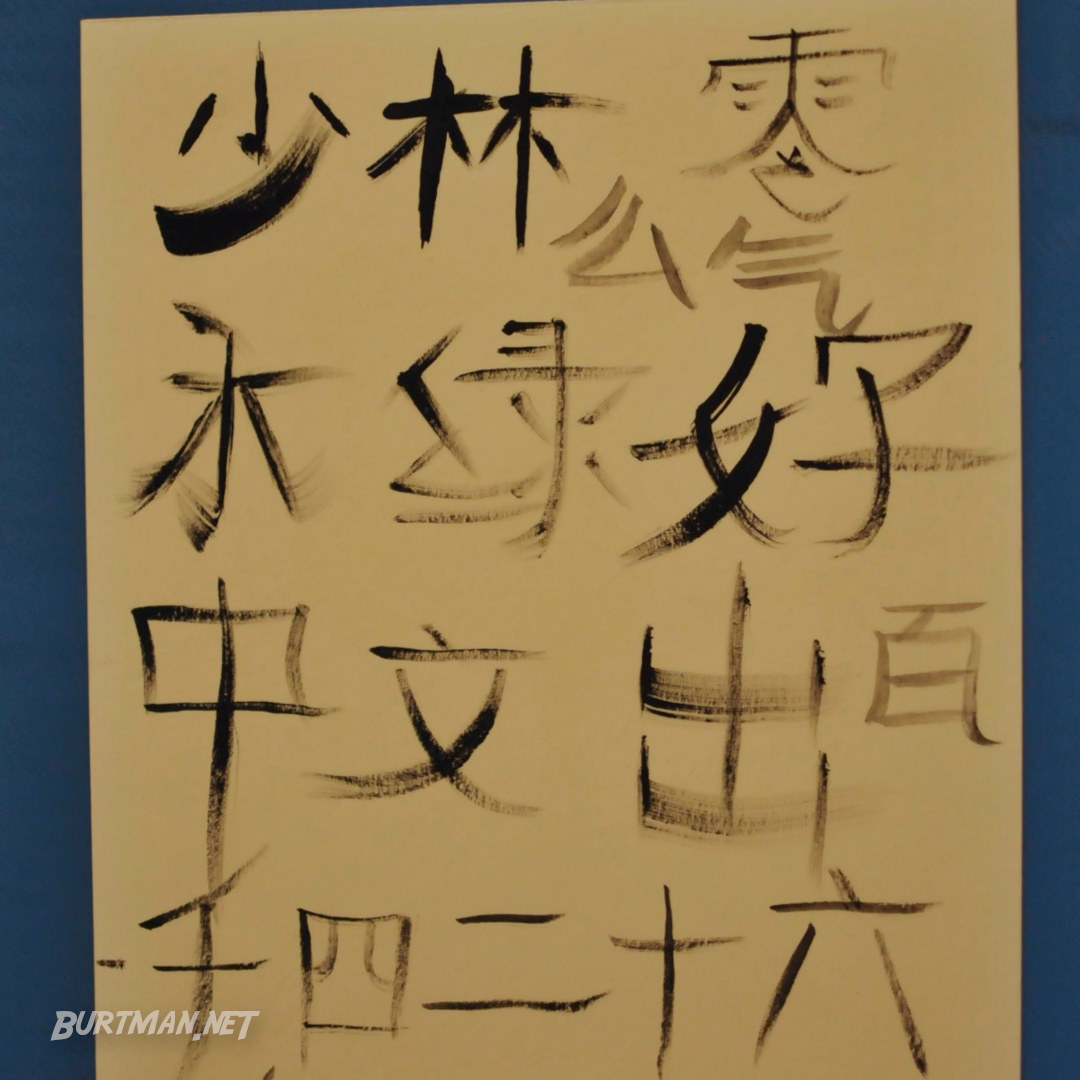 少林零
公气
永绿好
中文出百
千四二十六
BURTMAN.NET